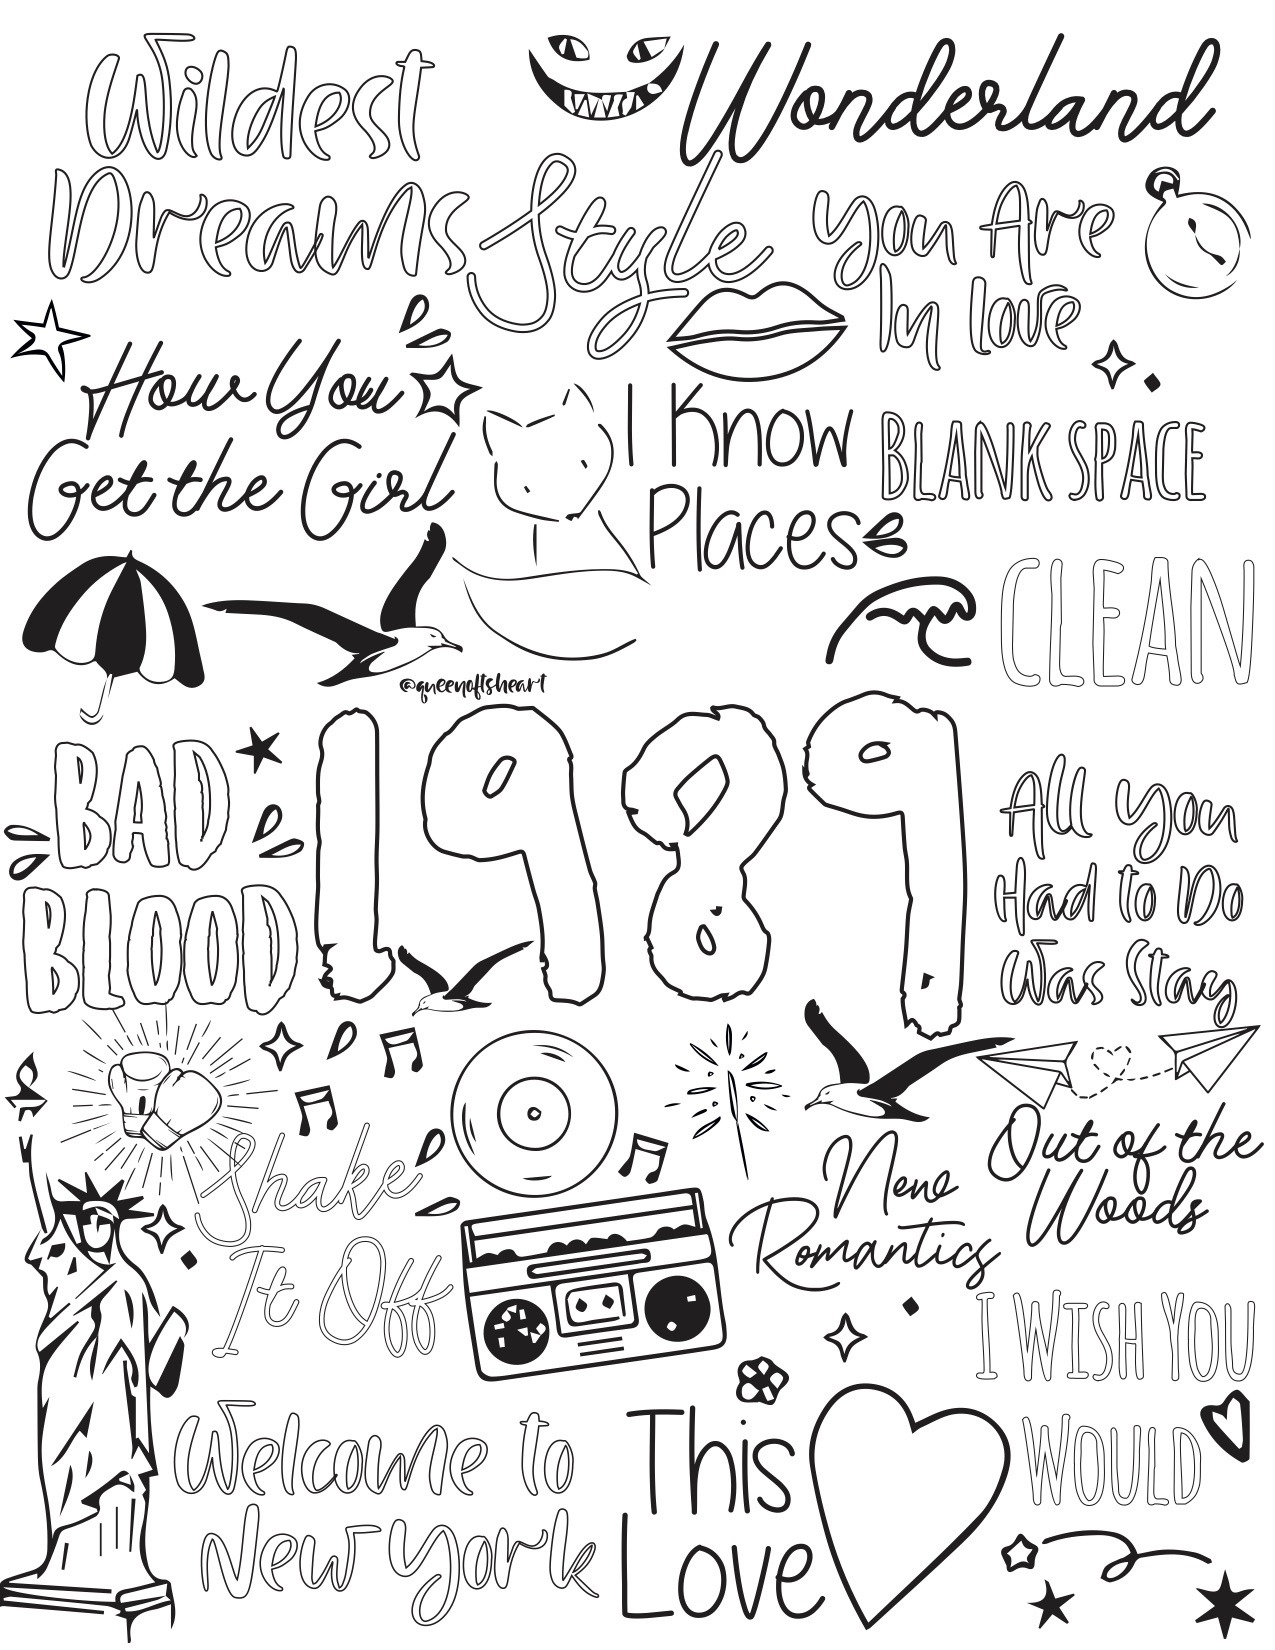 Wildest
Dreams
Wonderland
Style
You Are
In love
How You
Get the Girl
I Know
Places
BLANK SPACE
CLEAN
@queenoftsheart
BAD
BLOOD
1989
All You
Had to Do
Was Stay
Shake
It Off
New
Romantics
Out of the
Woods
I WISH YOU
WOULD
Welcome to
New York
This
Love